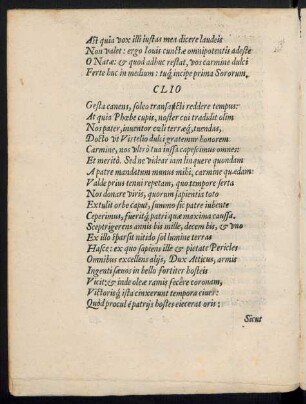 Ast quia vox illi iustas mea dicere laudeis
Non valet: ergo Iouis cunctæ omnipotentis adeste
O Natæ: & quod adhuc restat, vos carmine dulci
Ferte huc in medium: tuq; incipe prima Sororum.
CLIO
Gesta canens, soleo transacti reddere tempus:
At quia Phœbe cupis, noster ceu tradidit olim
Nos pater, inuentor culi terræq; tuendas,
Docto vt Virtelio dulci gratemur honorem
Carmine, nos vltrò tua iussa capescimus omnes:
Et meritò. Sed ne videar iam linquere quondam
A patre mandatum munus mihi, carmine quædam
Valde prius tenui repetam, quo tempore serta
Nos donare viris, quorum sapientia toto
Extulit orbe caput, summo sic patre iubente
Ceperimus, fueritq; patri quæ maxima caussa.
Sceptrigerens annis bis mille, decem bis, & vno
Ex illo sparsit nitido sol lumine terras
Hasce: ex quo sapiens ille & pietate Pericles
Omnibus excellens alijs, Dux Atticus, armis
Ingenti sæuos in bello fortiter hosteis
Vicit: & inde oleæ ramis fecêre coronam,
Victorisq; ista cinxerunt tempora ciues:
Quòd procul è patrijs hostes eiecerat oris:
Sicut